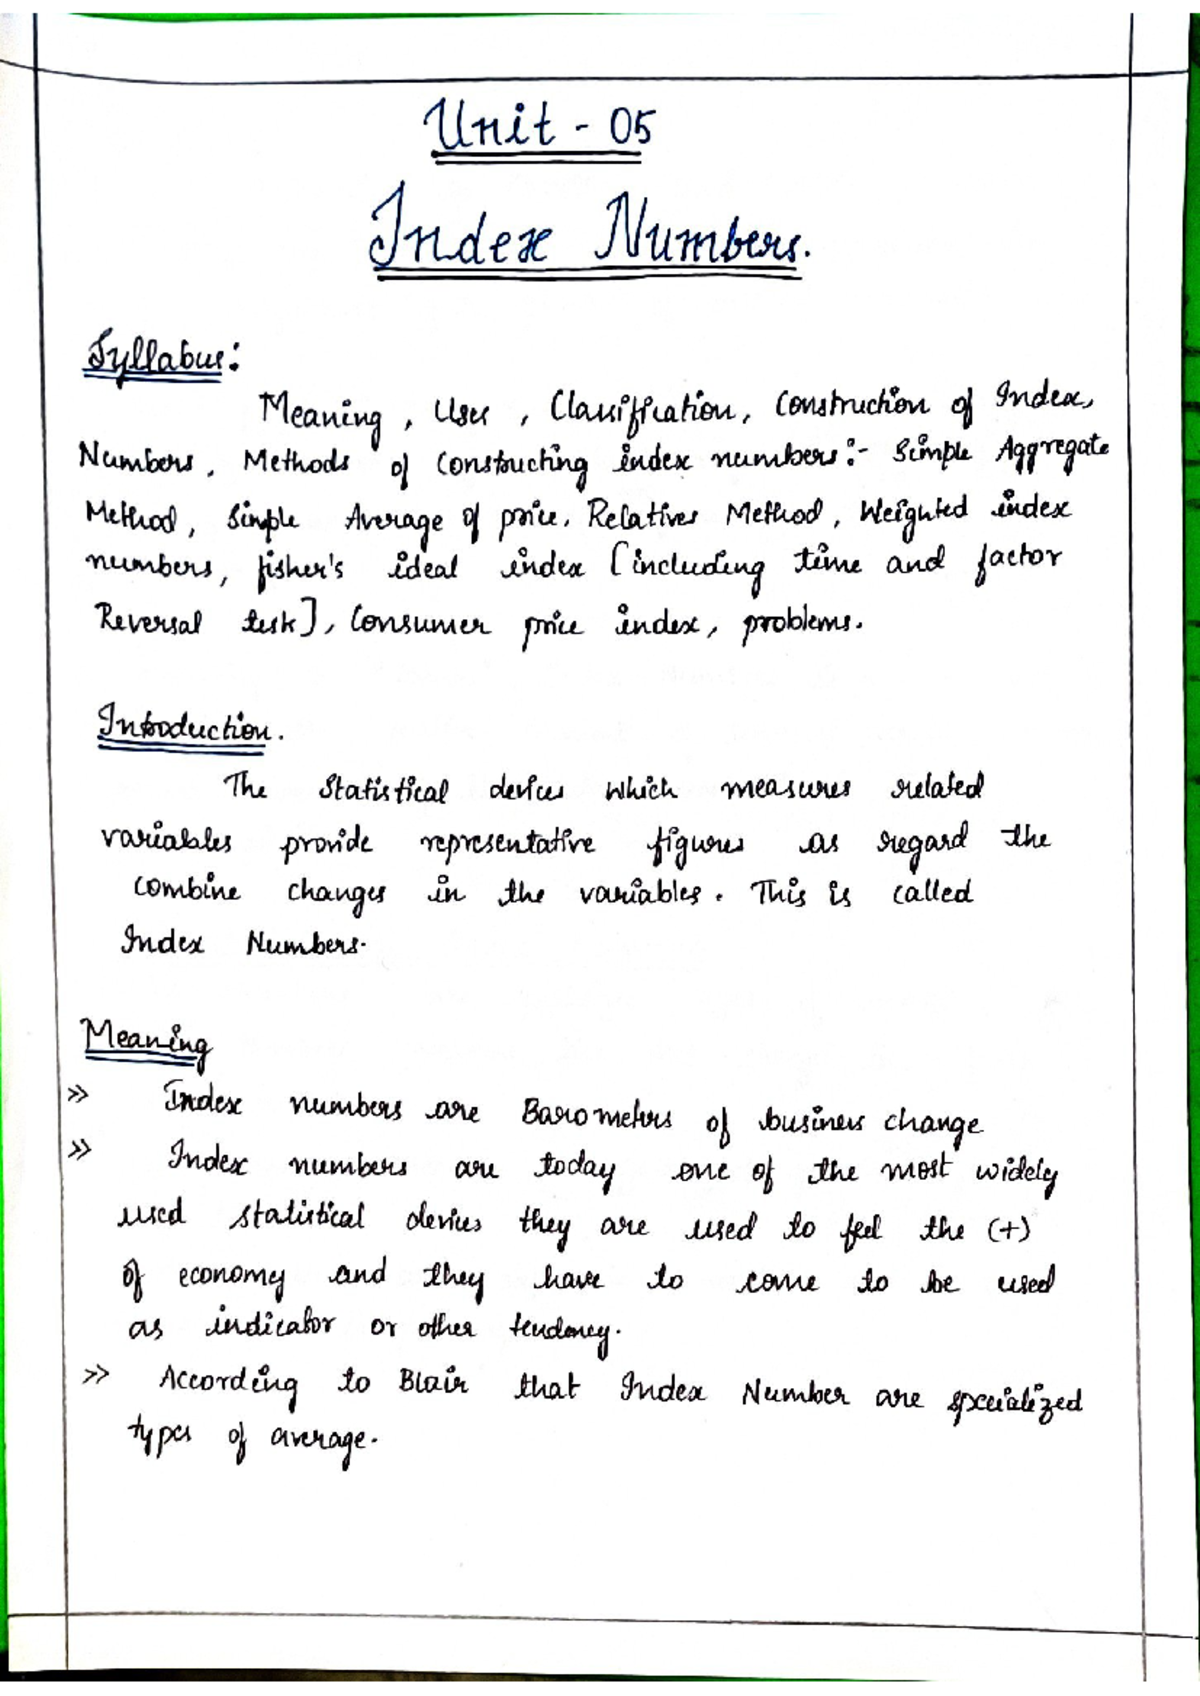 Unit - 05
Index Numbers.
Syllabus:
Meaning, Uses, Classification, Construction of Index,
Numbers, Methods of constructing index numbers:- Simple Aggregate
Method, Simple Average of price, Relatives Method, Weighted index
numbers, fisher's ideal index [including time and factor
Reversal test], Consumer price index, problems.
Introduction.
The Statistical devices which measures related
variables provide representative figures as regard the
combine changes in the variables. This is called
Index Numbers.
Meaning
>> Index numbers are Barometers of business change
>> Index numbers are today one of the most widely
used statistical devices they are used to feel the (+)
of economy and they have to come to be used
as indicator or other tendency.
>> According to Blair that Index Number are specialized
types of average.